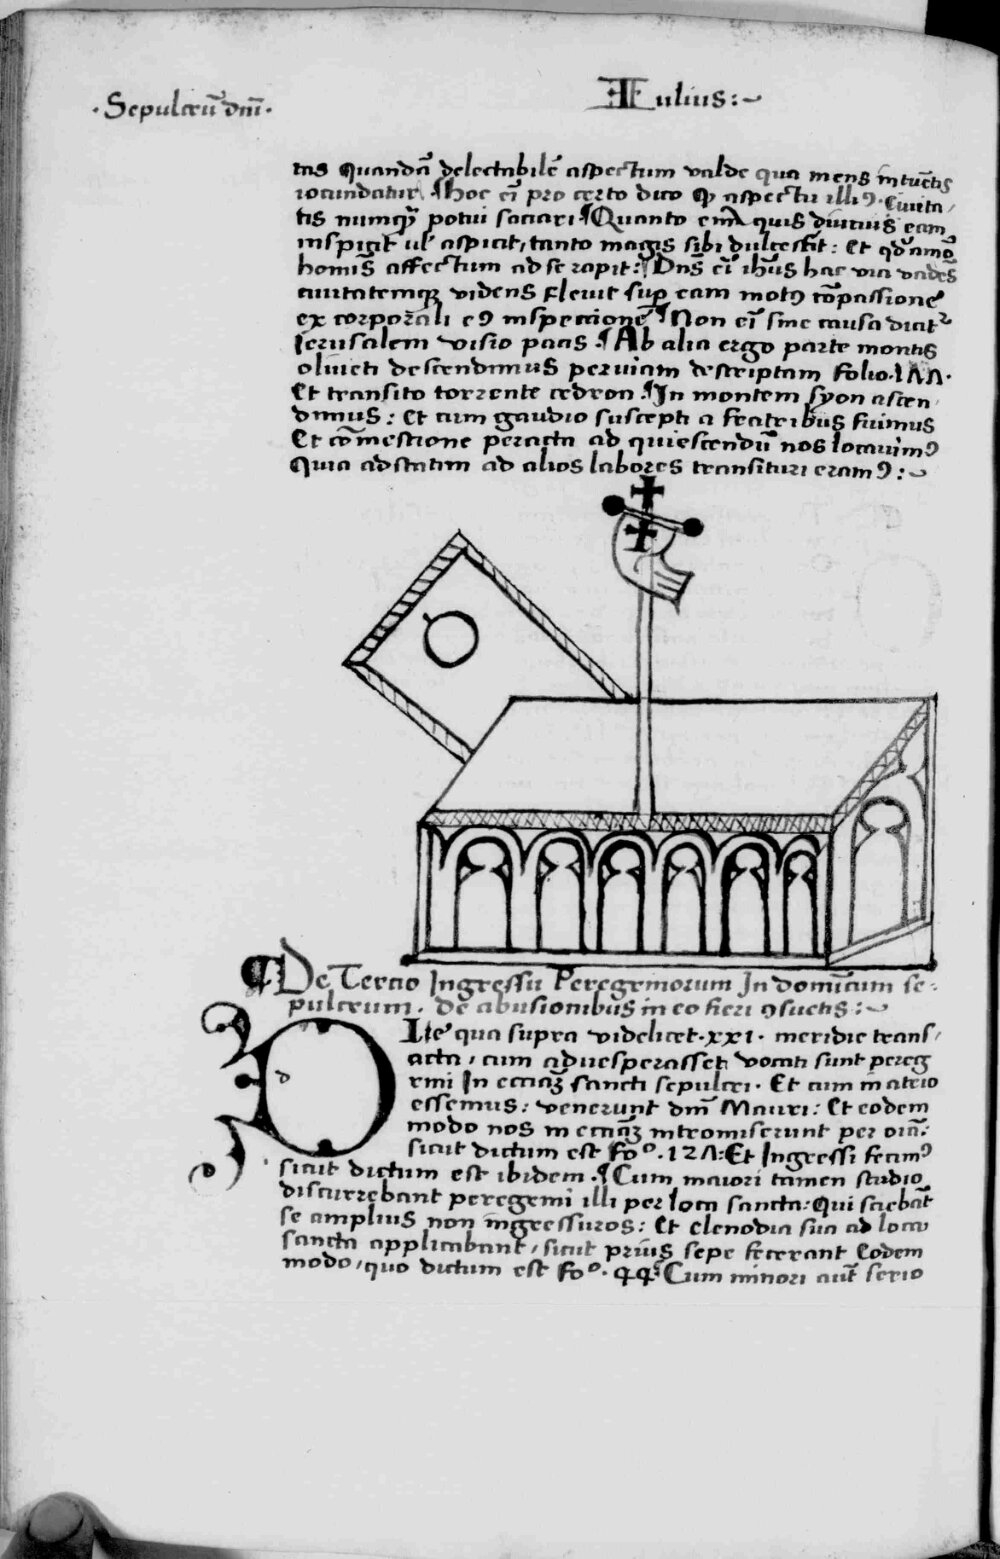 ·Sepulcrū dnī·
Iulius:~
tas quandā delectabilē aspectum valde qua mens intuētis
iocundatur ¶Hoc eī pro certo dico qp aspectu illiꝰ Ciuita/
tis numqꝫ potui saciari ¶Quanto enī quis diucius eam
inspicit ul' aspicit, tanto magis sibi dulcescit: Et qd' amō
homīs affectum ad se rapit: ¶Dns eī ihūs hac via vadēs
ciuitatemqꝫ videns fleuit sup eam motꝰ cōpassione
ex corporali eꝰ inspeccione ¶Non eī sine causa dicitr
Ierusalem visio pacis ¶Ab alia ergo parte montis
oliueti descendimus per viam descriptam folio·1ΛΛ·
Et transito torrente cedron ¶In montem syon ascen
dimus: Et cum gaudio suscepti a fratribus fuimus
Et cōmestione peracta ad quiescendū nos locauimꝰ
Quia ad statim ad alios labores transituri eramꝰ:~
¶De Tercio Ingressu Peregrinorum In dominicum se:
pulcrum. de abusionibus in eo fieri ꝯsuetis:~
DIe qua supra videlicet·xxi· meridie trans/
acta, cum aduesperasset vocati sunt pereg
rini In ecciaꝫ sancti sepulcri· Et cum in atrio
essemus: venerunt dnī Mauri: Et eodem
modo nos in ecciaꝫ intromiserunt per oīa:
sicut dictum est fo°·12Λ: Et Ingressi fecimꝰ
sicut dictum est ibidem ¶Cum maiori tamen studio
discurrebant peregrini illi per loca sancta: Qui sciebāt
se amplius non ingressuros: Et clenodia sua ad loca
sancta applicabant, sicut prius sepe fecerant Eodem
modo, quo dictum est fo°·94 ¶Cum minori aut serio